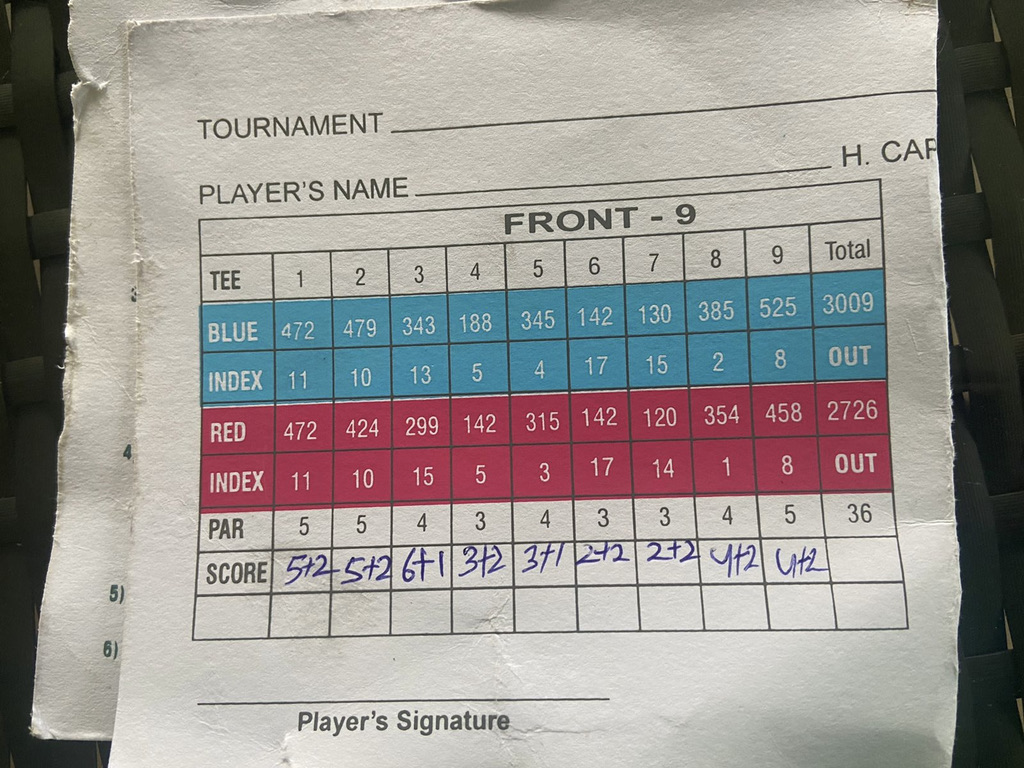 TOURNAMENT
H. CAP
PLAYER'S NAME
FRONT - 9
TEE 1 2 3 4 5 6 7 8 9 Total
BLUE 472 479 343 188 345 142 130 385 525 3009
INDEX 11 10 13 5 4 17 15 2 8 OUT
RED 472 424 299 142 315 142 120 354 458 2726
INDEX 11 10 15 5 3 17 14 1 8 OUT
PAR 5 5 4 3 4 3 3 4 5 36
SCORE 5+2 5+2 6+1 3+2 3+1 2+2 2+2 4+2 4+2
4
5)
6)
Player's Signature